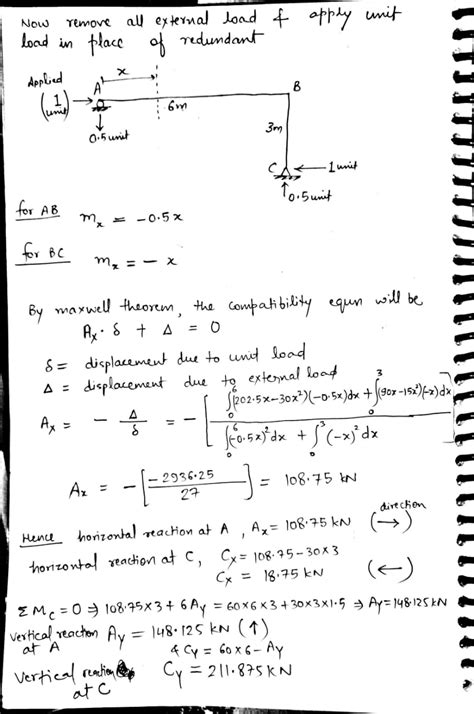 Now remove all external load & apply unit
load in place of redundant
Applied
(1 unit)
A
x
B
6m
0.5 unit
3m
C
1 unit
0.5 unit
for AB   m_x = -0.5x
for BC   m_x = - x
By maxwell theorem, the compatibility equn will be
A_x . δ + Δ = 0
δ = displacement due to unit load
Δ = displacement due to external load
A_x = - Δ/δ = - [ ∫_0^6 (202.5x-30x²)(-0.5x)dx + ∫_0^3 (90x-15x²)(-x)dx / ∫_0^6 (-0.5x)² dx + ∫_0^3 (-x)² dx ]
A_x = - [ -2936.25 / 27 ] = 108.75 kN
direction
Hence horizontal reaction at A, A_x = 108.75 kN (→)
horizontal reaction at C, C_x = 108.75 - 30×3
C_x = 18.75 kN (←)
ΣM_C = 0 ⇒ 108.75×3 + 6A_y = 60×6×3 + 30×3×1.5 ⇒ A_y = 148.125 kN
vertical reaction at A A_y = 148.125 kN (↑)
& C_y = 60×6 - A_y
vertical reaction at C C_y = 211.875 kN